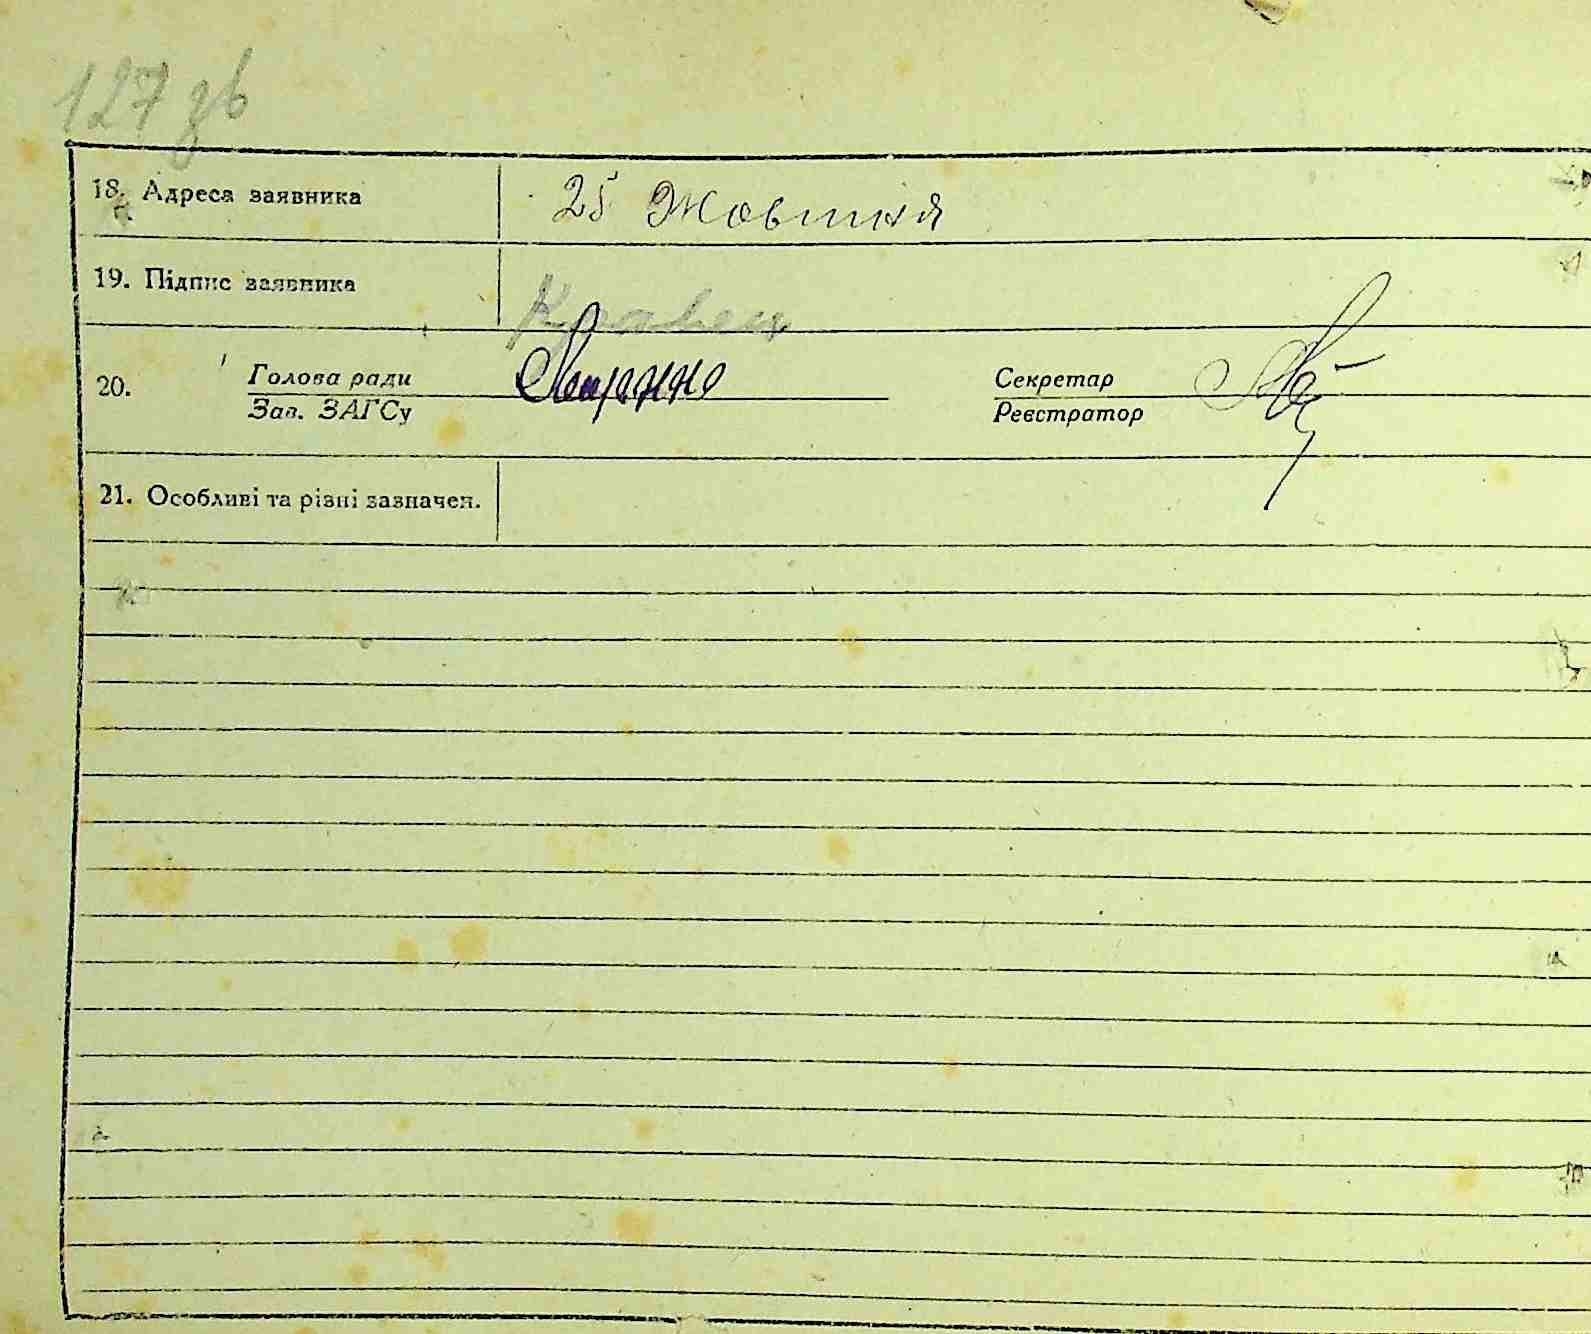 127 зв
18. Адреса заявника 25 Жовтня
19. Підпис заявника Кравец
20. Голова ради Секретар
Зав. ЗАГСу Реєстратор
21. Особливі та різні зазначен.